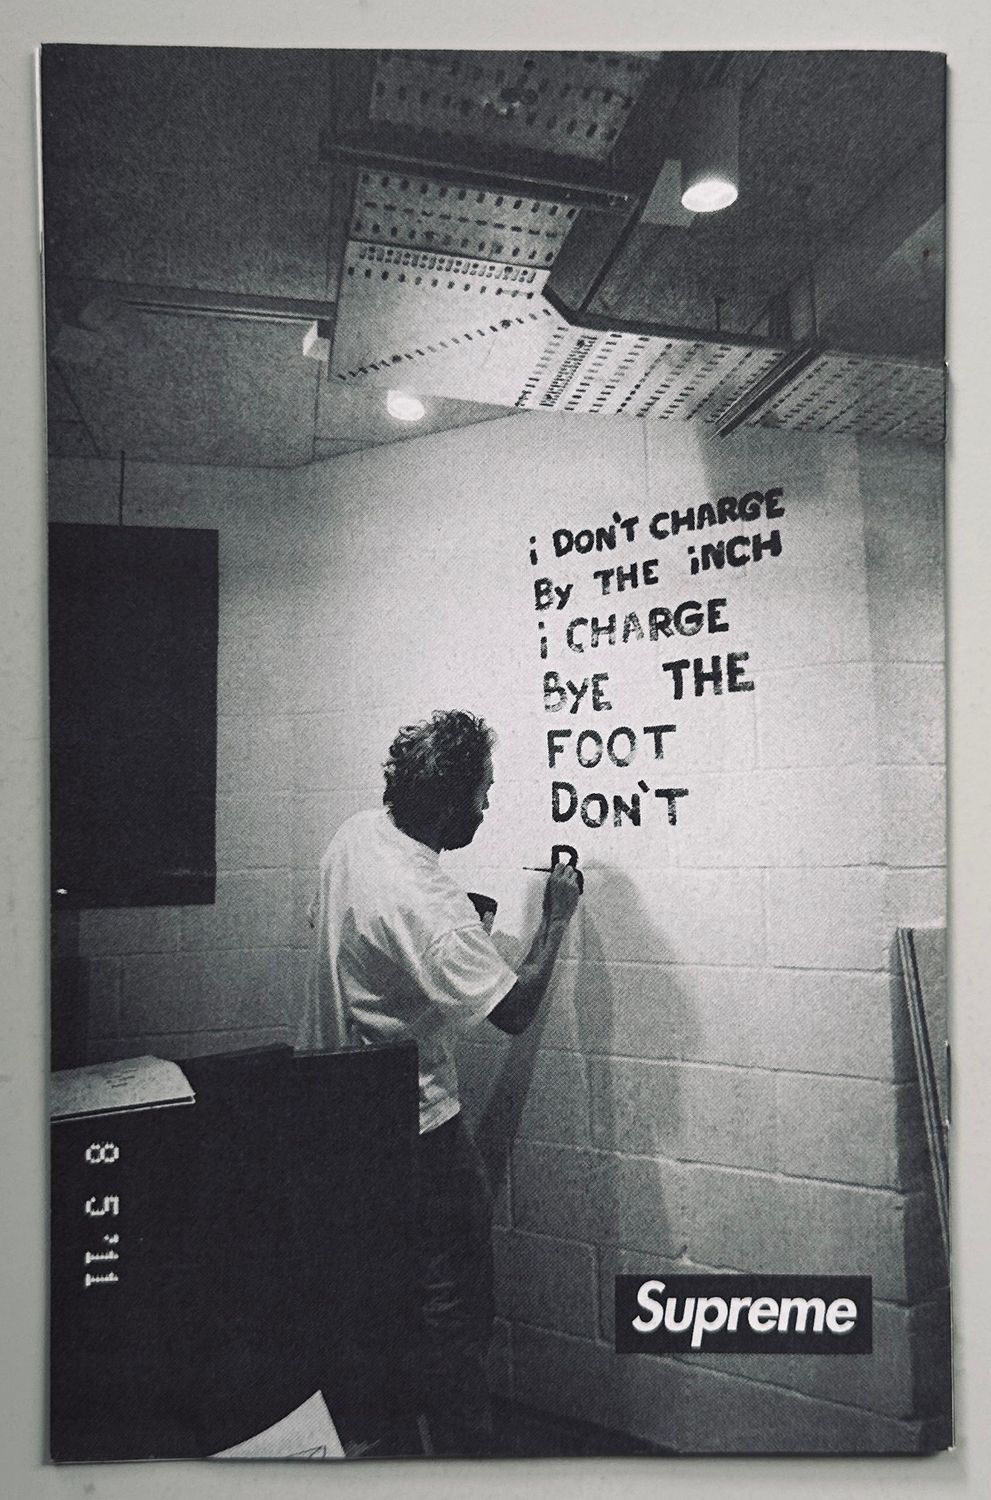 i DON'T CHARGE
By THE iNCH
i CHARGE
ByE THE
FOOT
DON'T
B
8 5 '11
Supreme